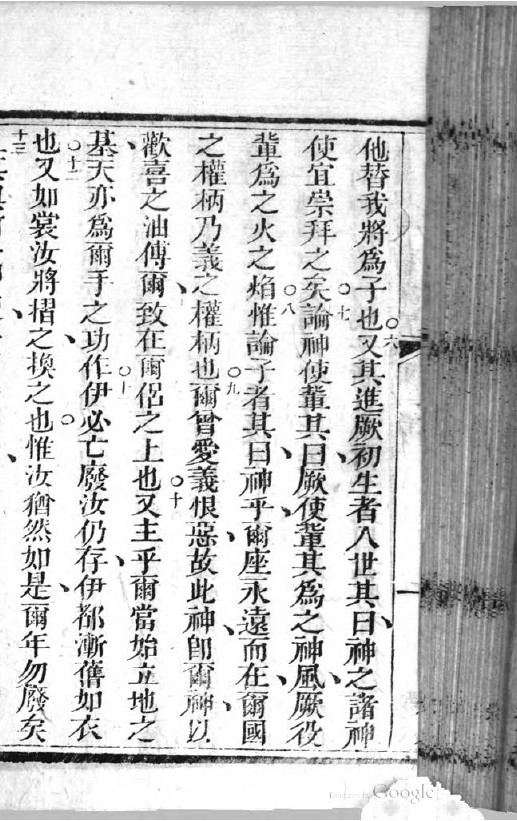 他替我將爲子也○六又其進厥初生者入世其曰神之諸神
使宜崇拜之矣○七論神使輩其曰厥使輩其爲之神風厥役
輩爲之火之焰○八惟論子者其曰神乎爾座永遠而在爾國
之權柄乃義之權柄也○九爾曾愛義恨惡故此神卽爾神以
歡喜之油傅爾致在爾侶之上也○十又主乎爾當始立地之
基天亦爲爾手之功作○十一伊必亡廢汝仍存伊都漸舊如衣
也○十二又如裳汝將摺之換之也惟汝猶然如是爾年勿廢矣
十三
Google